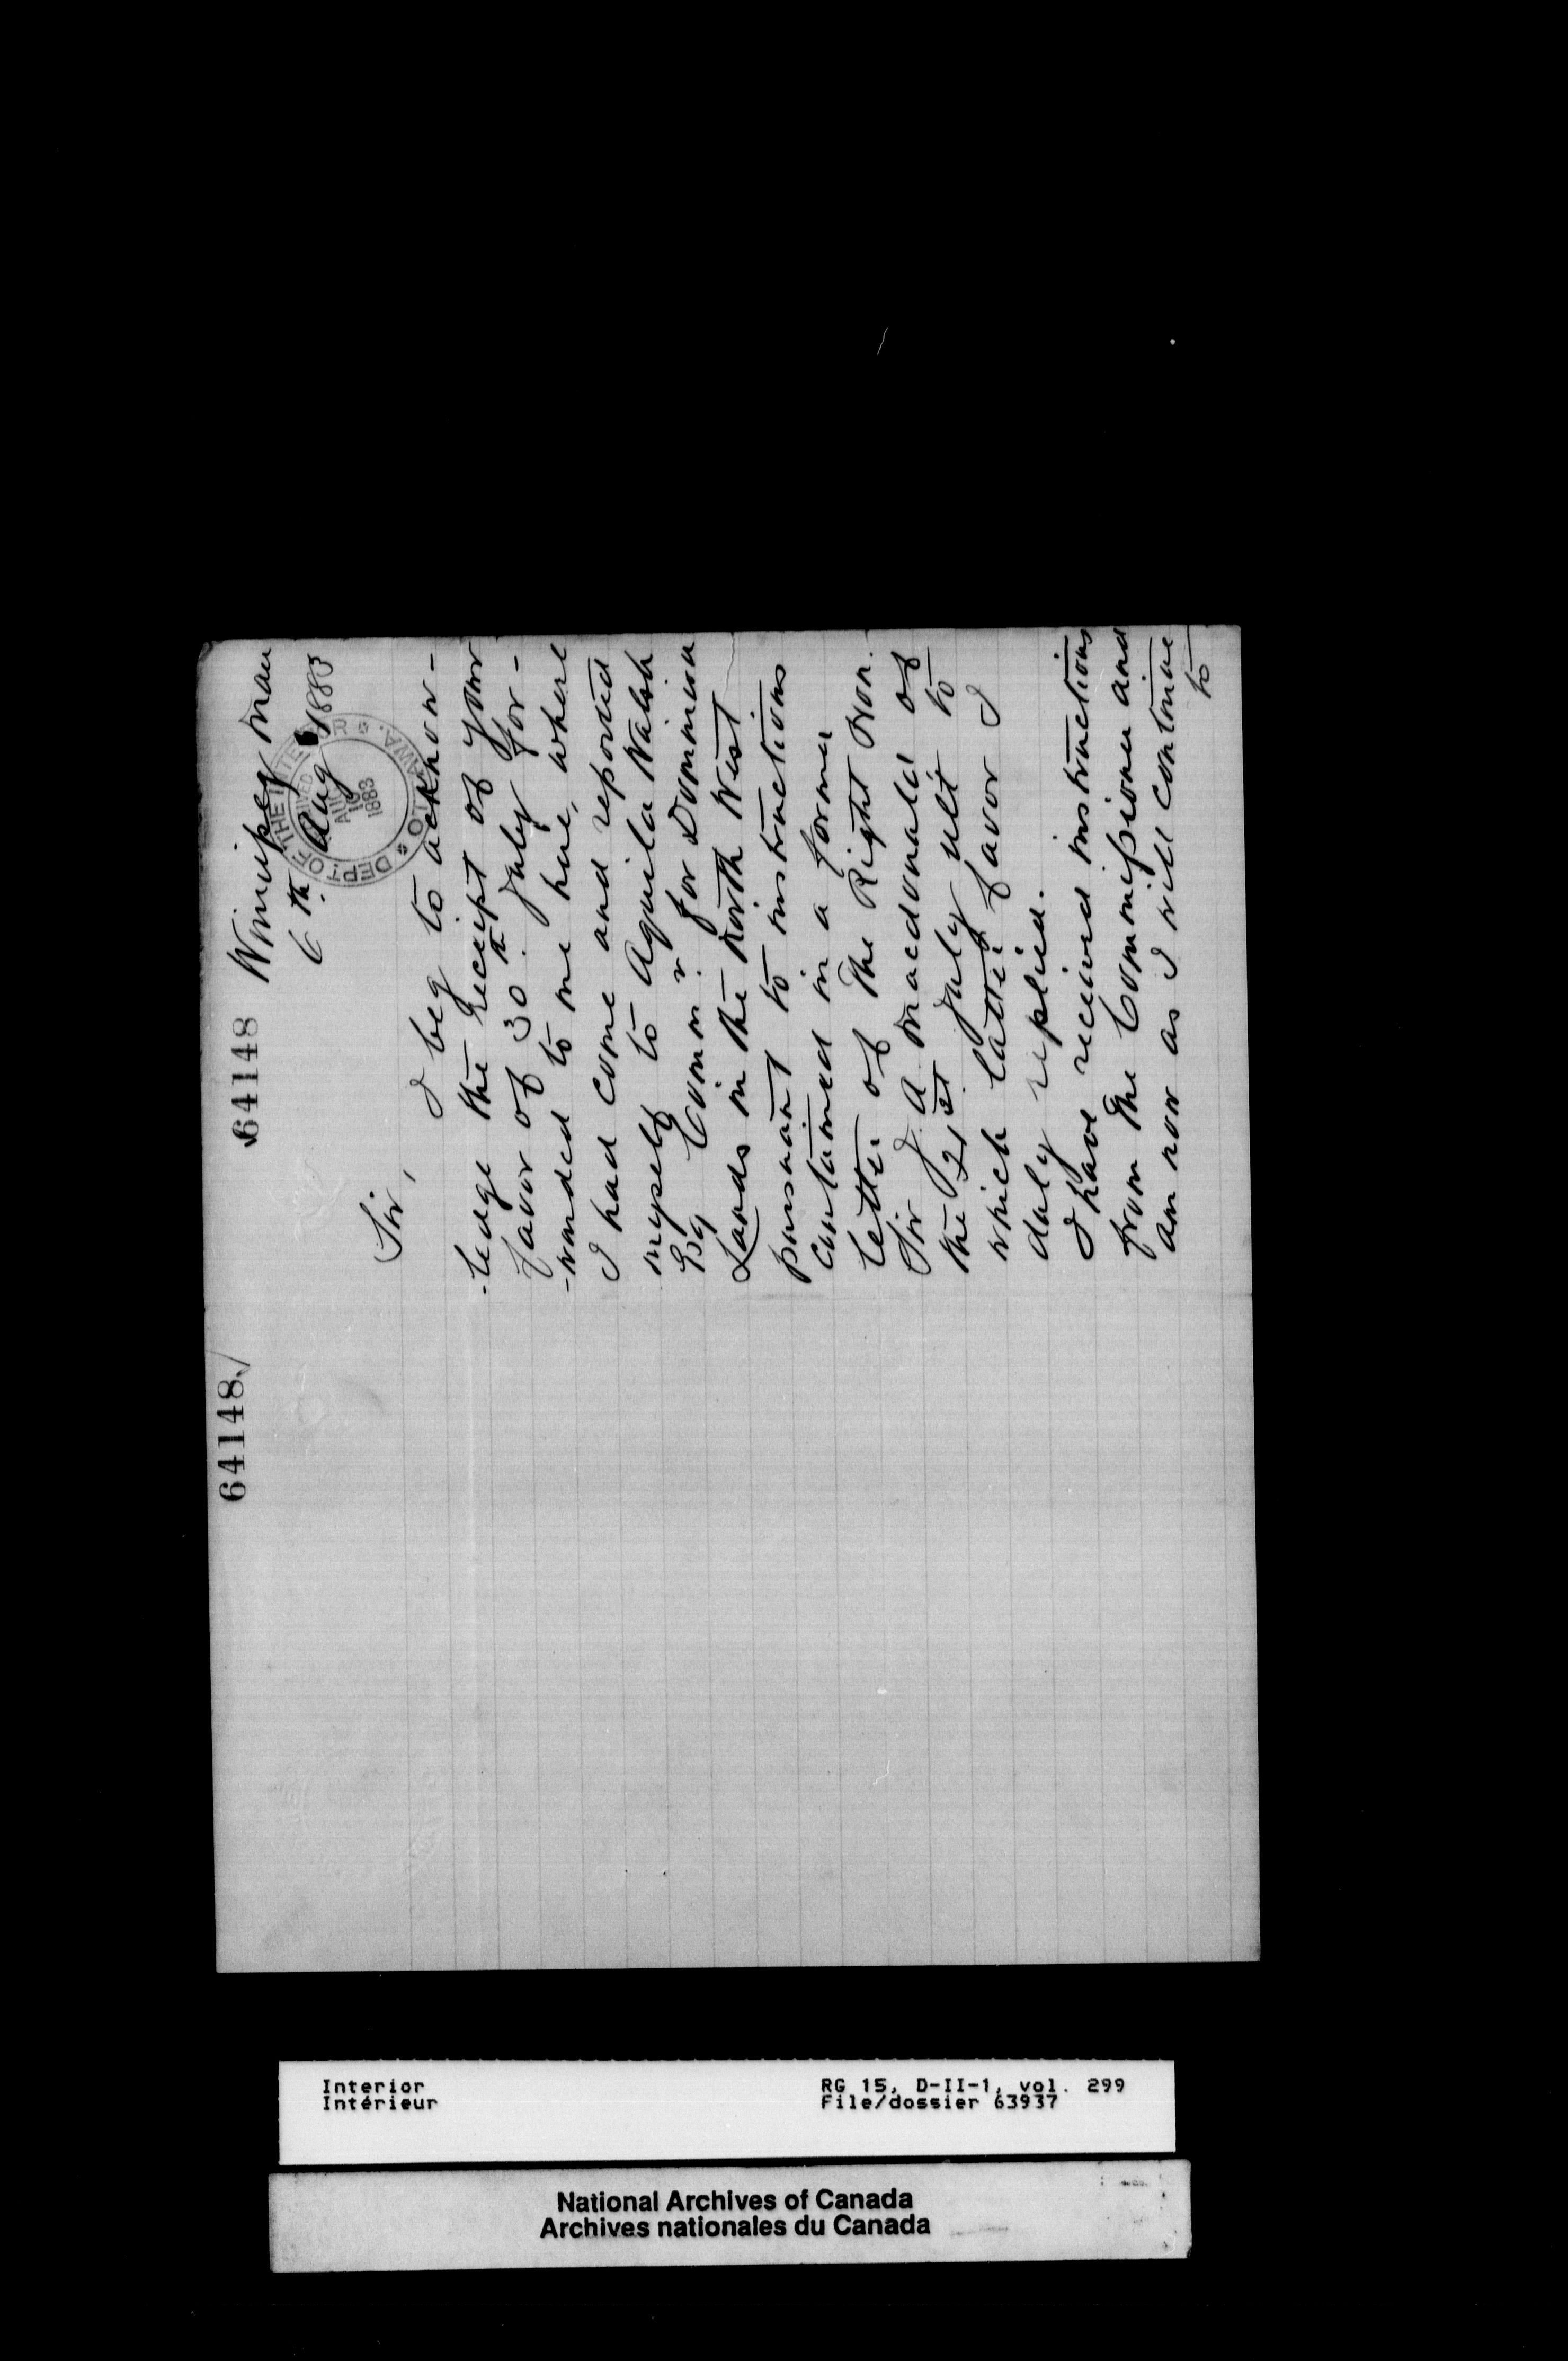 64148
64148
Winnipeg Man
6th Aug 1883
DEPT. OF THE INTERIOR
OTTAWA
AUG
10
1883
Sir,
I beg to acknow-
-ledge the receipt of your
favor of 30th July for-
-warded to me here, where
I had come and reported
myself to Aquila Walsh
Esq Commr. for Dominion
Lands in the North West
pursuant to instructions
contained in a former
letter of The Right Hon.
Sir J. A. Macdonald of
the 21st July ult to
which latter favor I
duly replied.
I have received instructions
from the Commissioner and
am now as I will continue
to
Interior
Intérieur
RG 15, D-II-1, vol. 299
File/dossier 63937
National Archives of Canada
Archives nationales du Canada